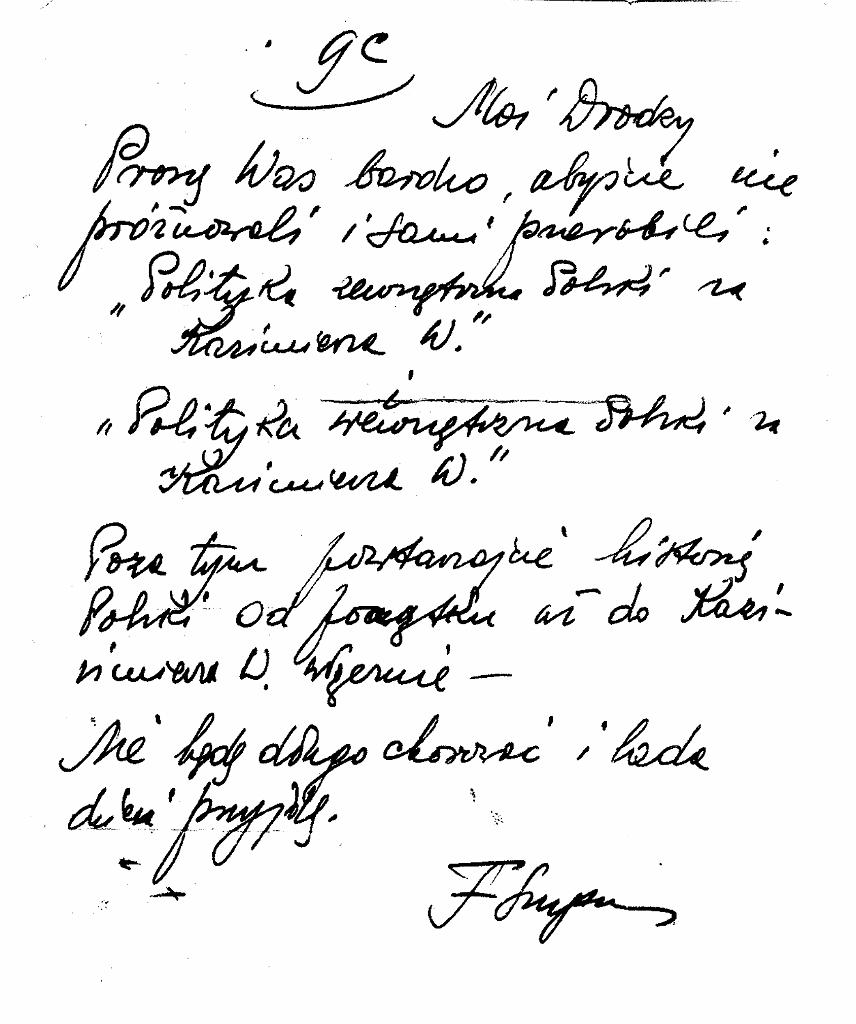 9c
Moi Drodzy
Proszę Was bardzo, abyście nie
próżnowali i sami przerobili:
„Polityka zewnętrzna Polski za
Kazimierza W."
i
„Polityka wewnętrzna Polski za
Kazimierza W."
Poza tym powtarzajcie historię
Polski od początku aż do Kazi-
mierza W. włącznie —
Nie będę długo chorować i lada
dzień przyjdę.